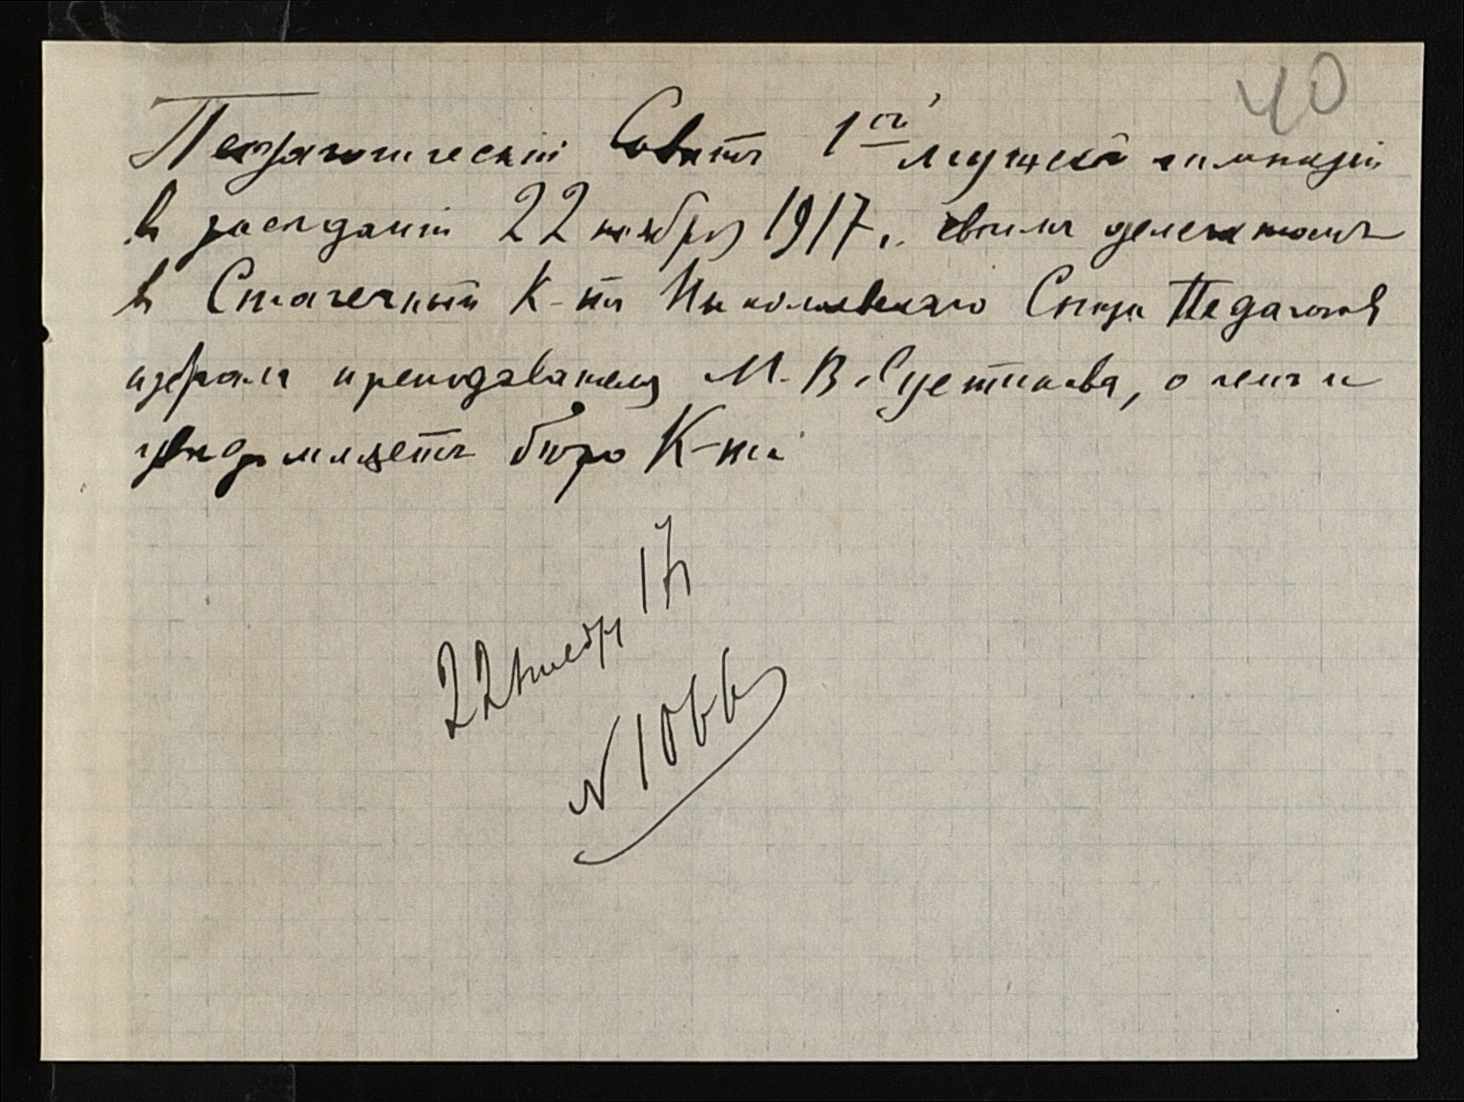 40
Педагогическiй Совѣтъ 1ой мужской гимназiи
въ засѣданiи 22 ноября 1917 г. своимъ делегатомъ
въ Стачечный К-тъ Николаевскаго Союза Педагоговъ
избралъ преподавателя М. В. Сустикова, о чемъ и
увѣдомляетъ бюро К-та
22 ноября 17
N 1066